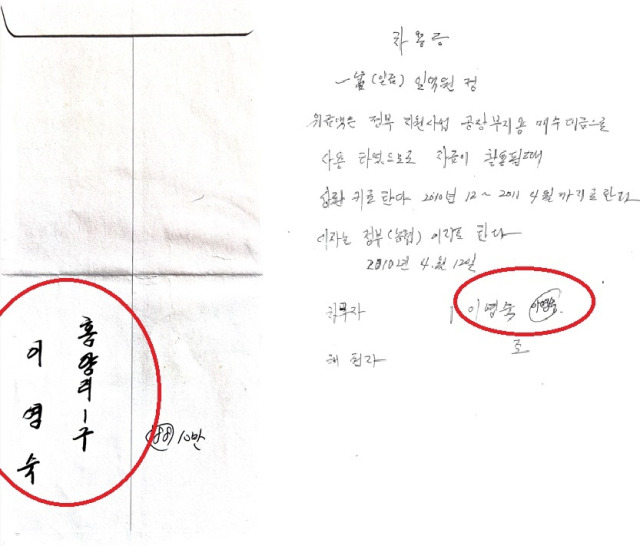 홍양리 一구
이 영 숙
10만
차 용 증
一金 (일금) 일억원 정
위금액은 정부 지원사업 공장부지용 매수대금으로
사용 하였으므로 자금이
키로 한다 2010년 12 ~ 2011 4월 까지로 한다
이자는 정부 (농협) 이자로 한다
2010년 4.월 12일
채무자 이영숙 이영숙
조
채권자